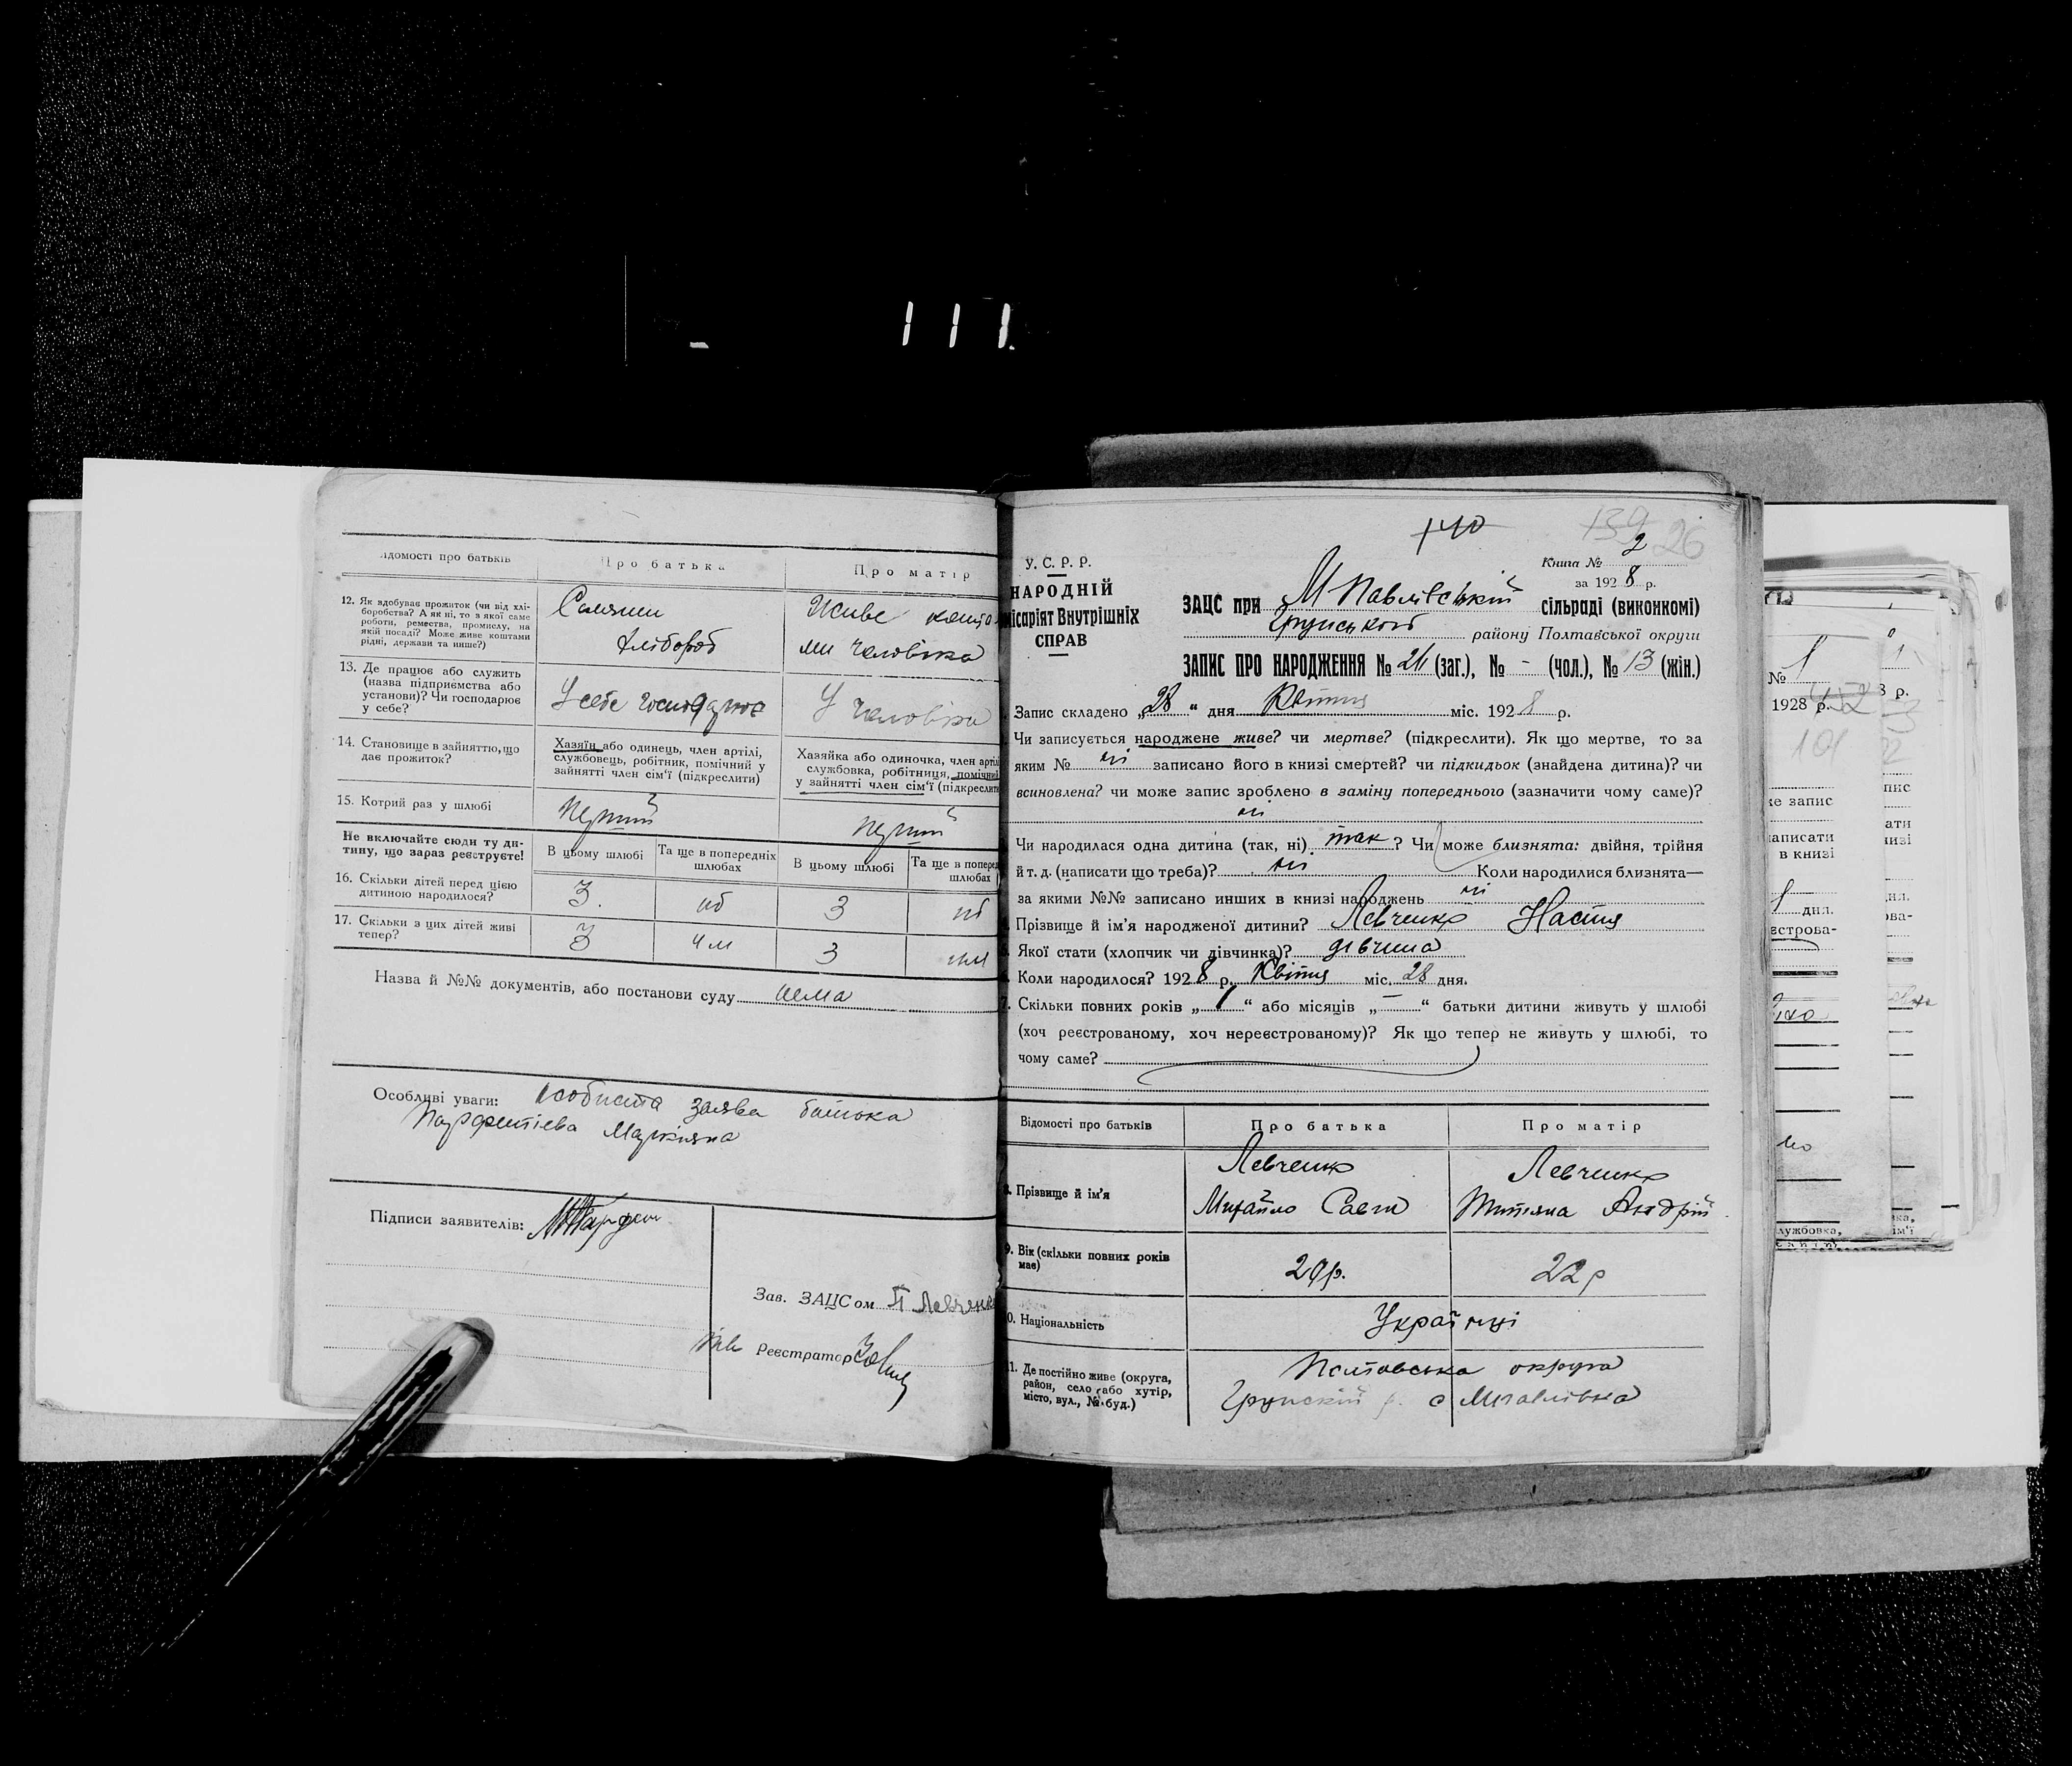 111.
Відомості про батьків
Про батька
Про матір
12. Як здобуває прожиток (чи від хлі-
боробства? А як ні, то з якої саме
роботи, ремества, промислу, на
якій посаді? Може живе коштами
рідні, держави та инше?)
Селянин
хлібороб
Живе кошта
ми чоловіка
13. Де працює або служить
(назва підприємства або
установи)? Чи господарює
у себе?
У себе господарює
У чоловіка
14. Становище в зайняттю, що
дає прожиток?
Хазяїн або одинець, член артілі,
службовець, робітник, помічний у
зайнятті член сім'ї (підкреслити)
Хазяйка або одиночка, член артіл
службовка, робітниця, помічни
у зайнятті член сім'ї (підкреслити
15. Котрий раз у шлюбі
перший
перший
Не включайте сюди ту ди-
тину, що зараз реєструєте!
В цьому шлюбі
Та ще в попередніх
шлюбах
В цьому шлюбі
Та ще в поперед
шлюбах
16. Скільки дітей перед цією
дитиною народилося?
3.
3
17. Скільки з цих дітей живі
тепер?
3
3
Назва й №№ документів, або постанови суду нема
Особливі уваги: особиста заява батька
Парфентієва Маркіяна
Підписи заявителів:
Зав. ЗАЦСом П Левченко
Реєстратор
140
139 26
У. С. Р. Р.
НАРОДНІЙ
місаріят Внутрішніх
СПРАВ
Книга № 2
за 1928 р.
ЗАЦС при МПавлівській сільраді (виконкомі)
Грунського району Полтавської округи
ЗАПИС ПРО НАРОДЖЕННЯ № 21 (заг.), № - (чол.), № 13 (жін.)
Запис складено „28“ дня Квітня міс. 1928 р.
Чи записується народжене живе? чи мертве? (підкреслити). Як що мертве, то за
яким № ні записано його в книзі смертей? чи підкидьок (знайдена дитина)? чи
всиновлена? чи може запис зроблено в заміну попереднього (зазначити чому саме)?
ні
Чи народилася одна дитина (так, ні) так? Чи може близнята: двійня, трійня
й т. д. (написати що треба)? ні Коли народилися близнята—
за якими №№ записано инших в книзі народжень ні
Прізвище й ім'я народженої дитини? Левченко Настя
Якої стати (хлопчик чи дівчинка)? дівчина
Коли народилося? 1928 р. Квітня міс. 28 дня.
7. Скільки повних років „1“ або місяців „—“ батьки дитини живуть у шлюбі
(хоч реєстрованому, хоч нереєстрованому)? Як що тепер не живуть у шлюбі, то
чому саме?
Відомості про батьків
Про батька
Про матір
Прізвище й ім'я
Левченко
Михайло Сави
Левченко
Титяна Андрій
9. Вік (скільки повних років
має)
29р.
22р
0. Національність
Українці
1. Де постійно живе (округа,
район, село або хутір,
місто, вул., № буд.)
Полтавська округа
Грунский р. с Мпавлівка
№ 1
1928 р.
101